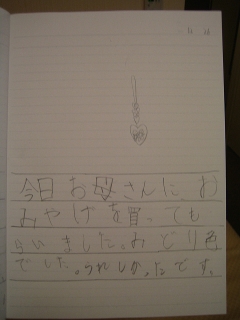 今日お母さんに、お
みやげを買っても
らいました。みどり色
でした。うれしかったです。